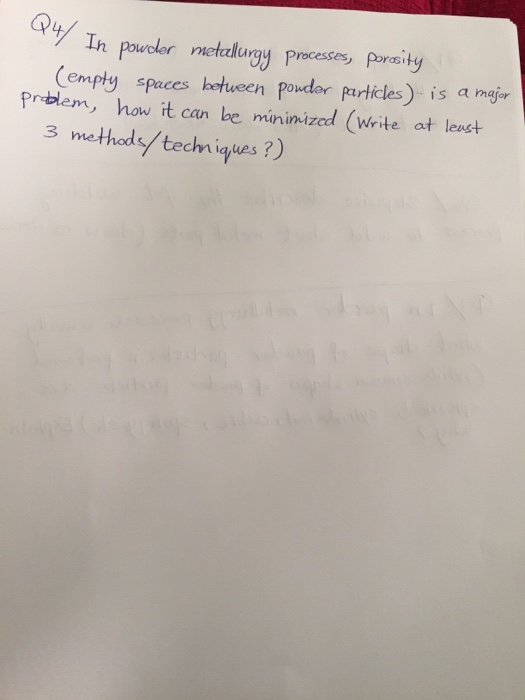 Q4/ In powder metallurgy processes, porosity
(empty spaces between powder particles) is a major
problem, how it can be minimized (Write at least
3 methods/techniques?)